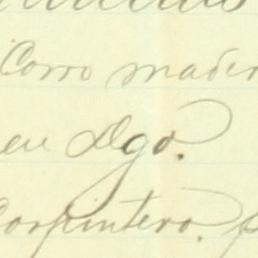 Corro mader
en Dgo.
Carpintero. p